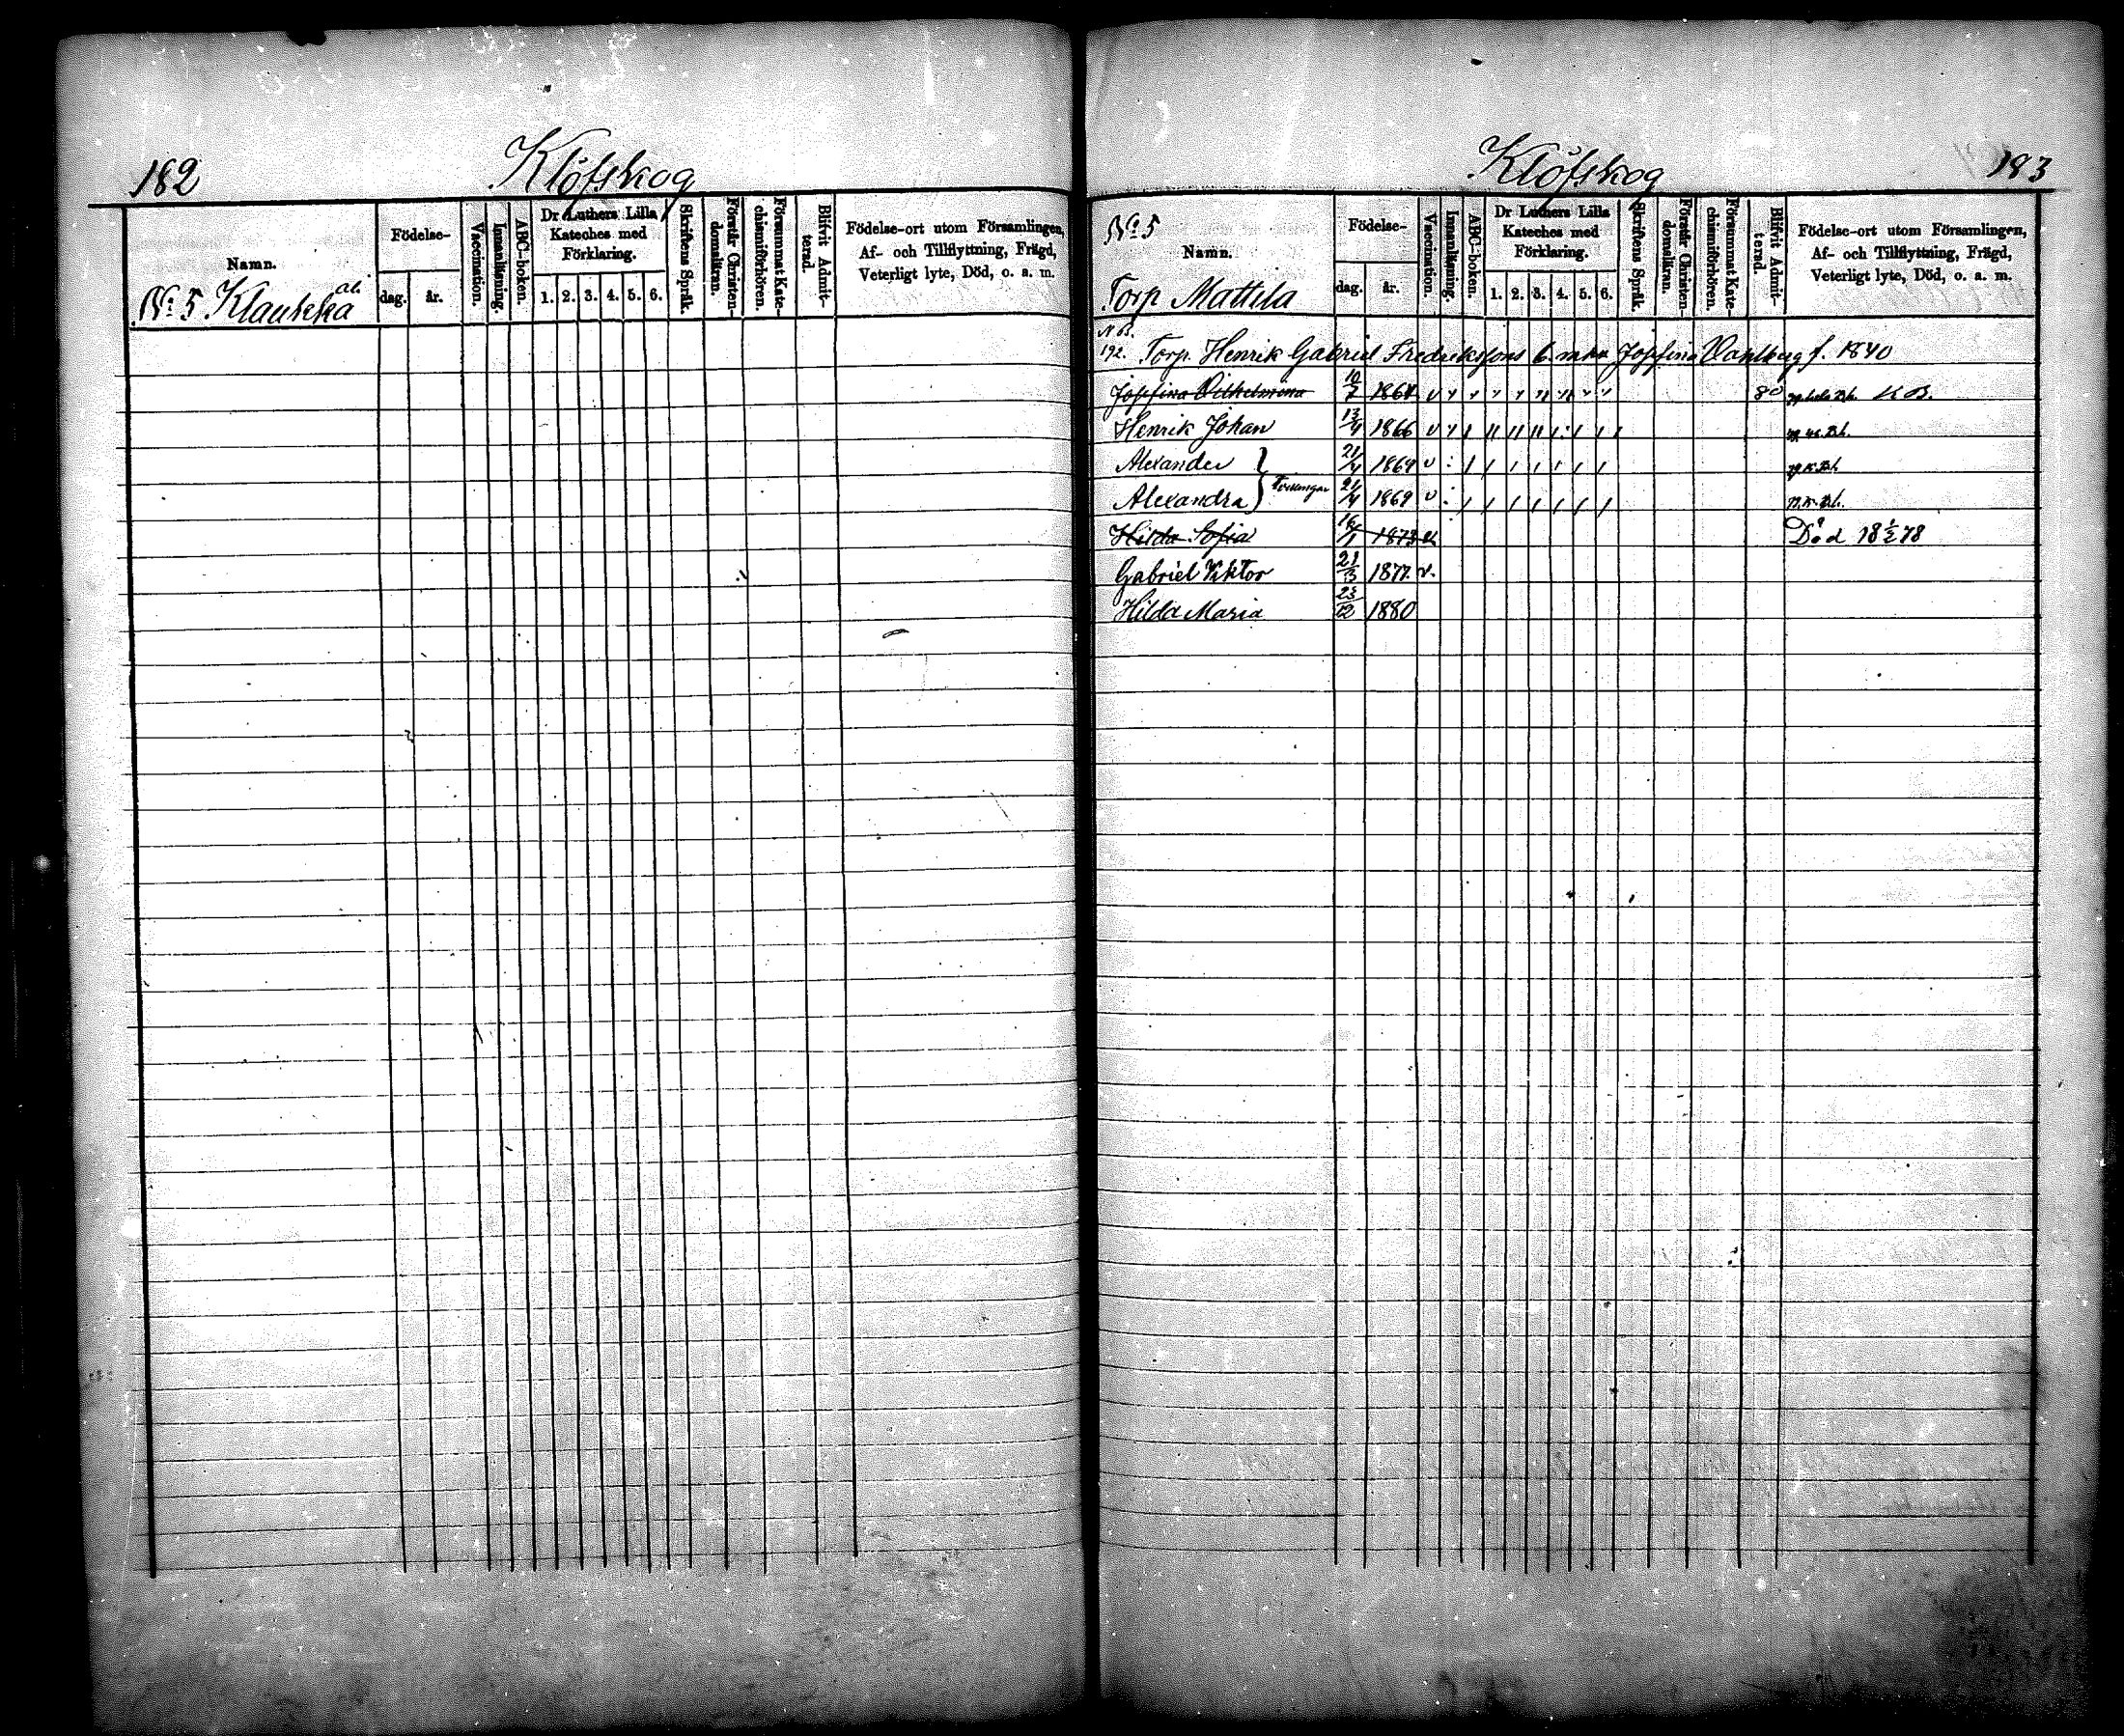 182
Klöfskog
Namn.
Födelse-
dag.
år.
Vaccination.
Innanläsning.
ABC-boken.
Dr Luthers Lilla
Kateches med
Förklaring.
1. 2. 3. 4. 5. 6.
Skriftens Språk.
Förstår Christen-
domsläran.
Försummat Kate-
chismiförhören.
Blifvit Admit-
terad.
Födelse-ort utom Församlingen,
Af- och Tillflyttning, Frägd,
Veterligt lyte, Död, o. a. m.
No 5 Klaukka
Klöfskog
183
No 5
Namn.
Födelse-
dag.
år.
Vaccination.
Innanläsning.
ABC-boken.
Dr Luthers Lilla
Kateches med
Förklaring.
1. 2. 3. 4. 5. 6.
Skriftens Språk.
Förstår Christen-
domsläran.
Försummat Kate-
chismiförhören.
Blifvit Admit-
terad.
Födelse-ort utom Församlingen,
Af- och Tillflyttning, Frägd,
Veterligt lyte, Död, o. a. m.
Torp Mattila
192. Torp. Henrik Gabriel Fredrikssons b. m. Josefina f. 1840
Josefina Vilhelmina 10/7 1864 80 K B.
Henrik Johan 13/4 1866
Alexander 21/4 1869
Alexandra 21/4 1869
Hilda Sofia 16/1 1873 Död 18 1/2 78
Gabriel Viktor 21/3 1877 v.
Hilda Maria 23/12 1880